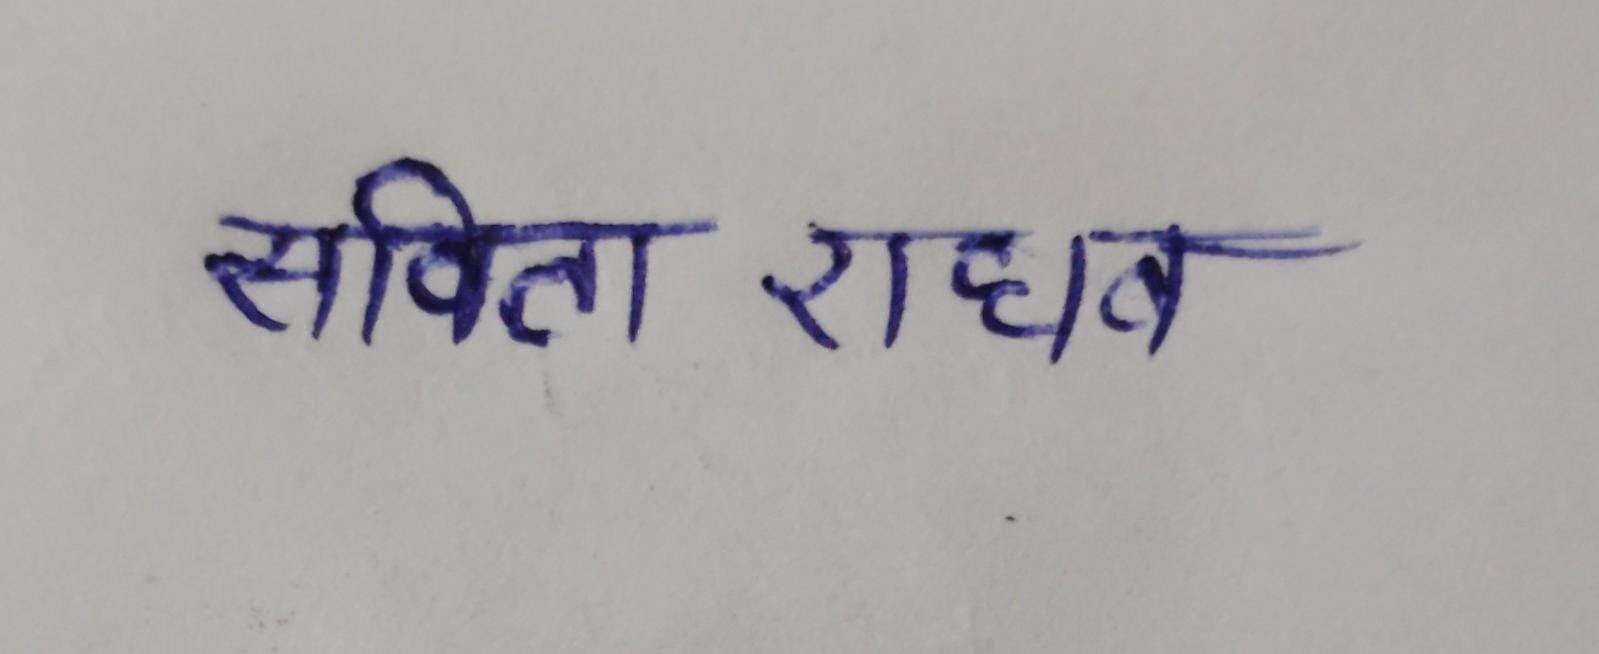 सविता राघव